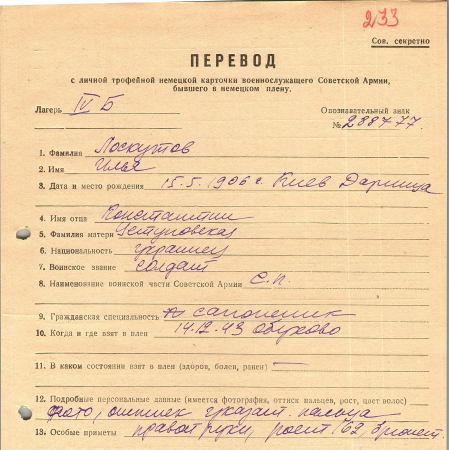 233
Сов. секретно
ПЕРЕВОД
с личной трофейной немецкой карточки военнослужащего Советской Армии,
бывшего в немецком плену,
Лагерь IV Б
Опознавательный знак
№ 288477.
1. Фамилия Лоскутов
2. Имя Илья
3. Дата и место рождения 15.5.1906 г. Киев Дарница
4. Имя отца Константин
5. Фамилия матери Устуновская
6. Национальность украинец
7. Воинское звание солдат
8. Наименование воинской части Советской Армии С.п.
9. Гражданская специальность сапожник
10. Когда и где взят в плен 14.12.43 Обухово
11. В каком состоянии взят в плен (здоров, болен, ранен) —
12. Подробные персональные данные (имеется фотография, оттиск пальцев, рост, цвет волос)
фото, оттиск указат. пальца
13. Особые приметы правой руки, рост 162, брюнет.